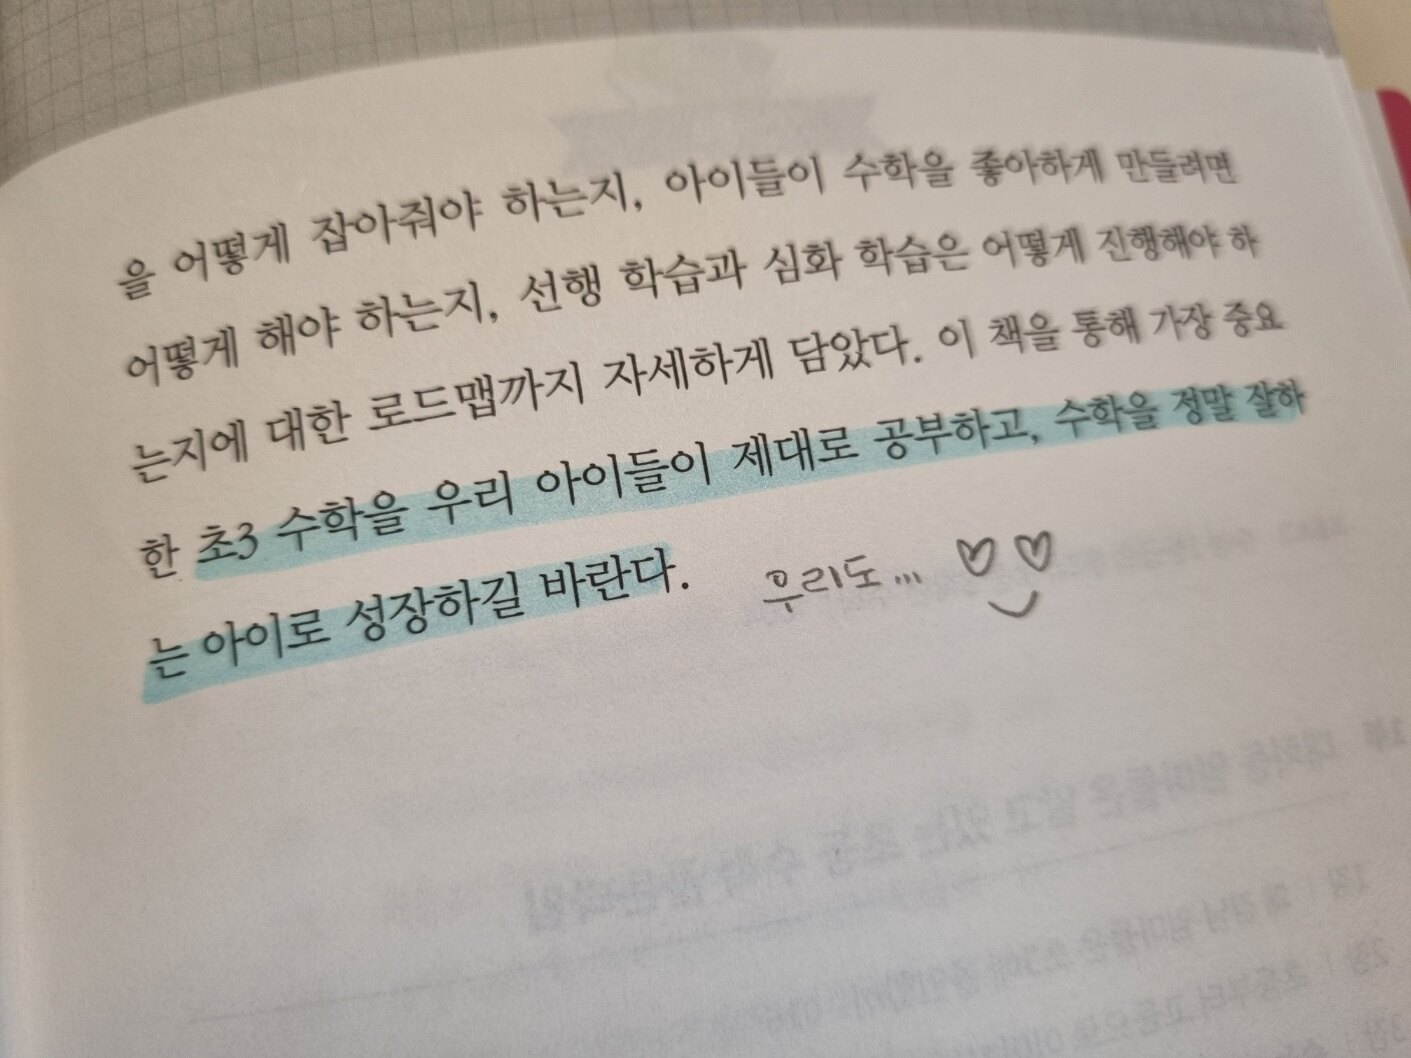 을 어떻게 잡아줘야 하는지, 아이들이 수학을 좋아하게 만들려면
어떻게 해야 하는지, 선행 학습과 심화 학습은 어떻게 진행해야 하
는지에 대한 로드맵까지 자세하게 담았다. 이 책을 통해 가장 중요
한 초3 수학을 우리 아이들이 제대로 공부하고, 수학을 정말 잘하
는 아이로 성장하길 바란다.
우리도...